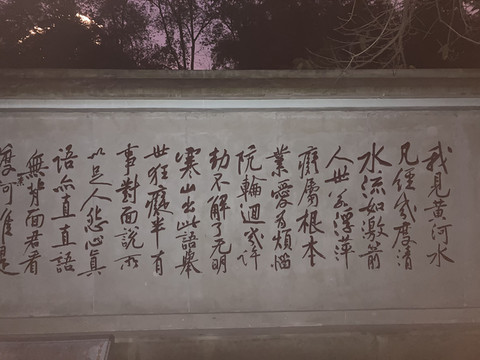 我見黃河水
凡經幾度清
水流如激箭
人世若浮萍
癡屬根本
業愛為煩惱
阬輪迴幾許
劫不解了无明
寒山出此語舉
世狂癡半有
事對面說所
以足人怨心真
語亦直直語
無背面君看
渡奈河誰是